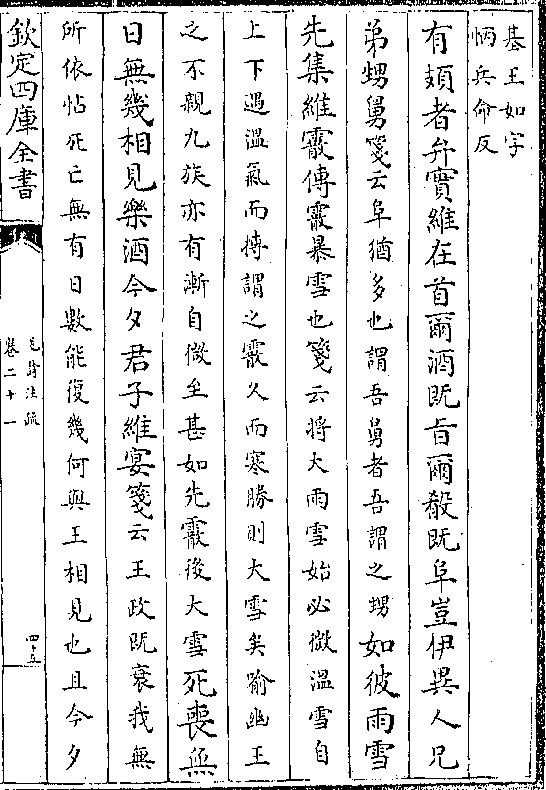 棊王如字
怲兵命反
有頍者弁實維在首爾酒既旨爾殽既阜豈伊異人兄
弟甥舅箋云阜猶多也謂吾舅者吾謂之甥如彼雨雪
先集維霰傳霰暴雪也箋云將大雨雪始必微溫雪自
上下遇溫氣而摶謂之霰久而寒勝則大雪矣喻幽王
之不親九族亦有漸自微至甚如先霰後大雪死喪無
日無幾相見樂酒今夕君子維宴箋云王政既衰我無
所依怙死亡無有日數能復幾何與王相見也且今夕
欽定四庫全書
毛詩注疏
卷二十一
四十五